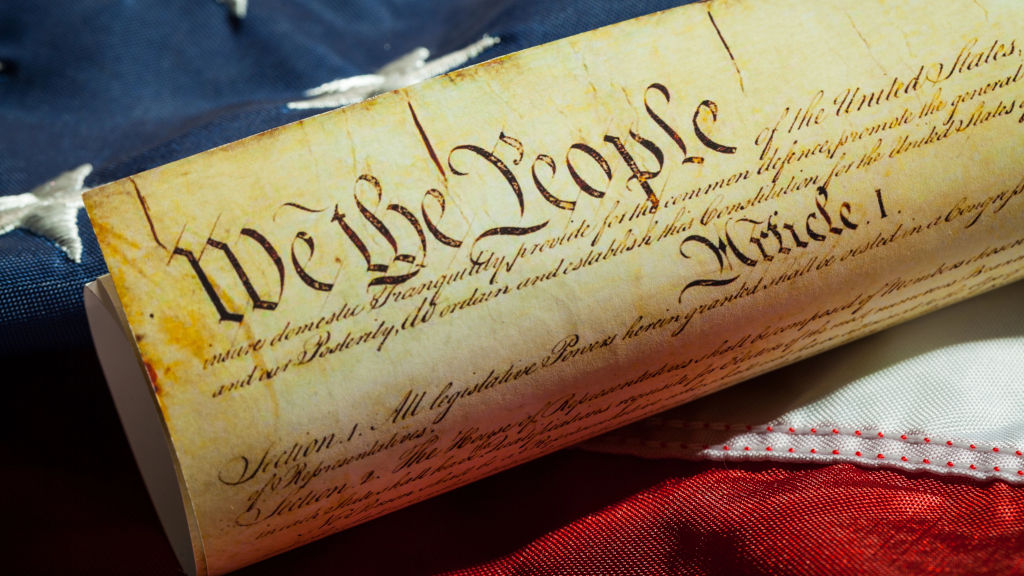 We the People of the United States,
insure domestic Tranquility, provide for the common defence, promote the general
and our Posterity, do ordain and establish this Constitution for the United States
Article I.
Section 1. All legislative Powers herein granted shall be vested in a Congress
of Representatives.
Section 2. The House of Representatives shall be composed of Members chosen